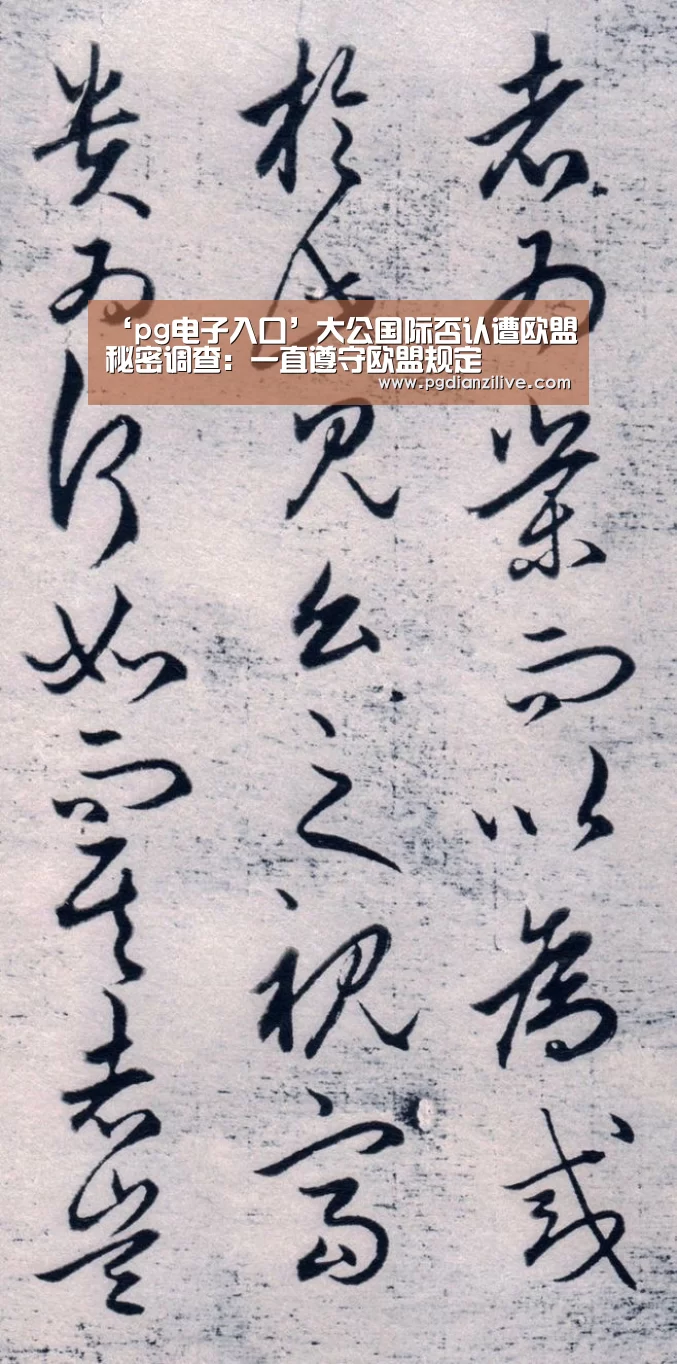 者為榮而以為戒
於此見公之視富
貴為何如而其志豈
‘pg电子入口’大公国际否认遭欧盟
秘密调查：一直遵守欧盟规定
www.pgdianzilive.com